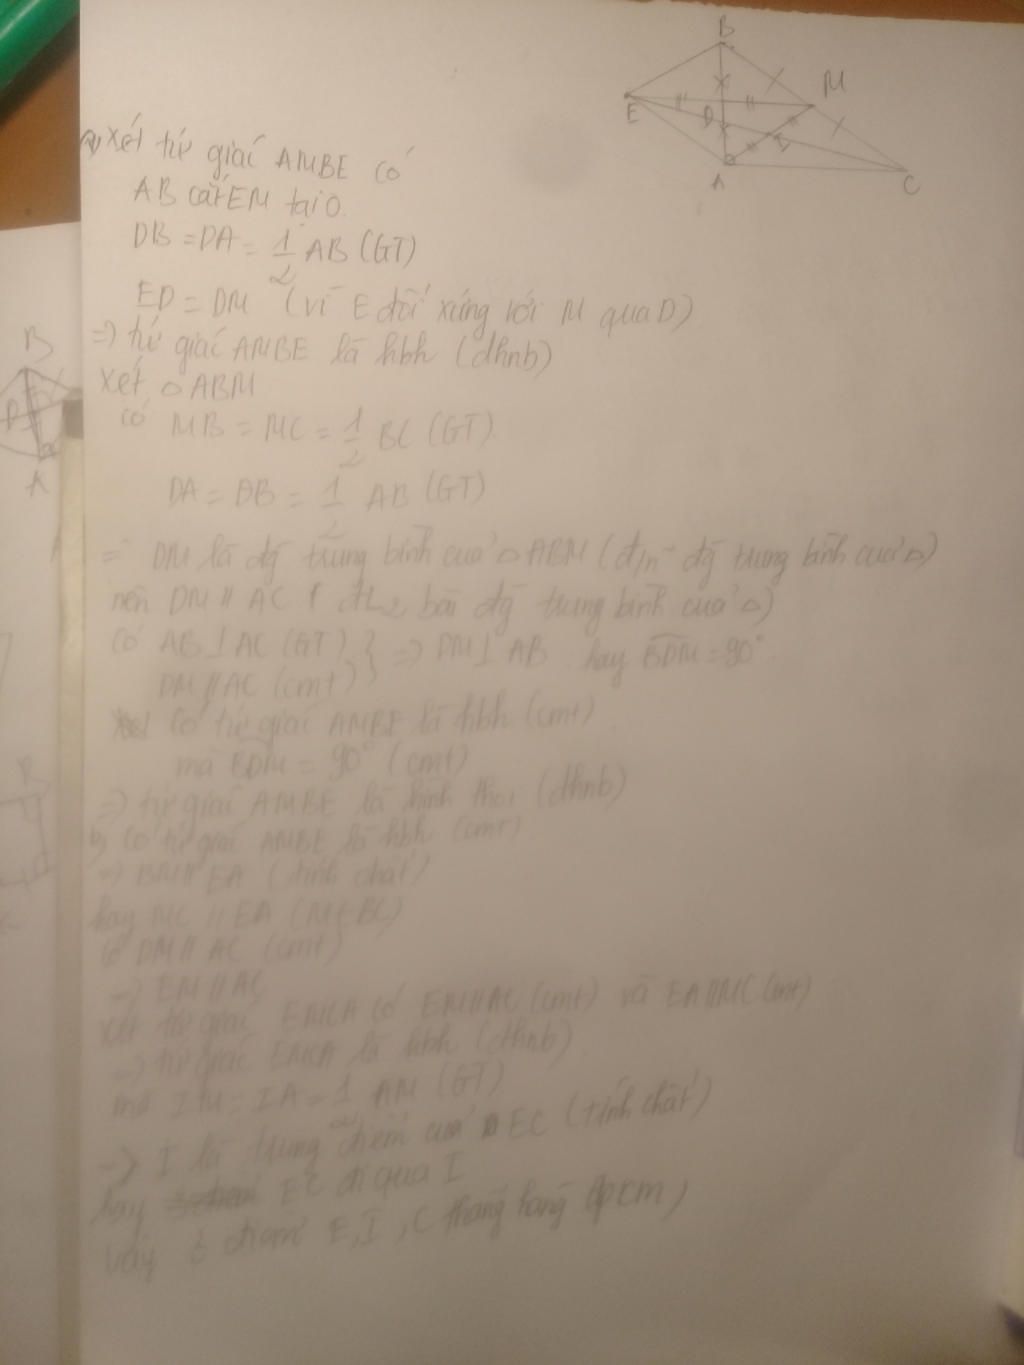 B
M
E
D
I
A
C
a, Xét tứ giác AMBE có
AB cắt EM tại O.
DB = DA = 1/2 AB (GT)
ED = DM (vì E đối xứng với M qua D)
=> tứ giác AMBE là hbh (dhnb)
Xét △ ABM
có MB = MC = 1/2 BC (GT).
DA = DB = 1/2 AB (GT)
= DM là đg trung bình của △ ABM (đ/n đg trung bình của △)
nên DM // AC ( đL2 bài đg trung bình của △)
Có AB ⊥ AC (GT) } => DM ⊥ AB hay BDM = 90°
DM // AC (cmt)
Có tứ giác AMBE là hbh (cmt)
mà BDM = 90° (cmt)
=> tứ giác AMBE là hình thoi (dhnb)
b, Có tứ giác AMBE là hbh (cmt)
=> BM // EA (tính chất)
hay MC // EA (M ∈ BC)
Có DM // AC (cmt)
=> EM // AC
Xét tứ giác EMCA có EM // AC (cmt) và EA // MC (cmt)
=> tứ giác EMCA là hbh (dhnb)
mà IM = IA = 1/2 AM (GT)
=> I là trung điểm của EC (tính chất)
hay EC đi qua I
Vậy 3 điểm E, I, C thẳng hàng (đpcm)
B
D
A
B